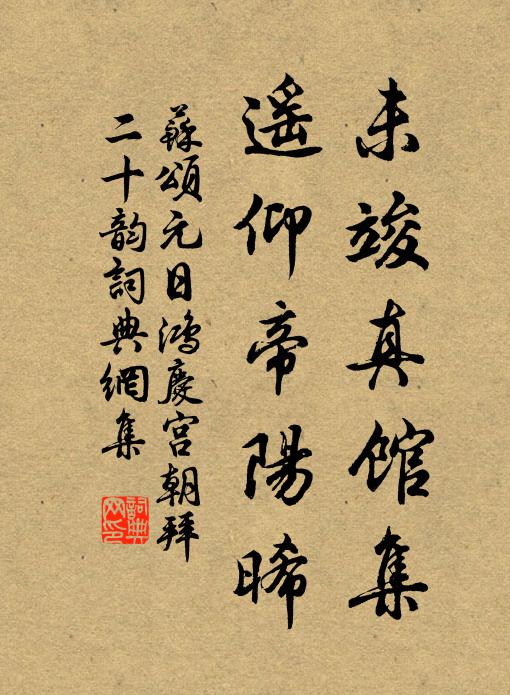 未竣真馆集
遥仰帝陽晞
蘇頌元日鴻慶宫朝拜
二十韵詞典網集
詞典網印